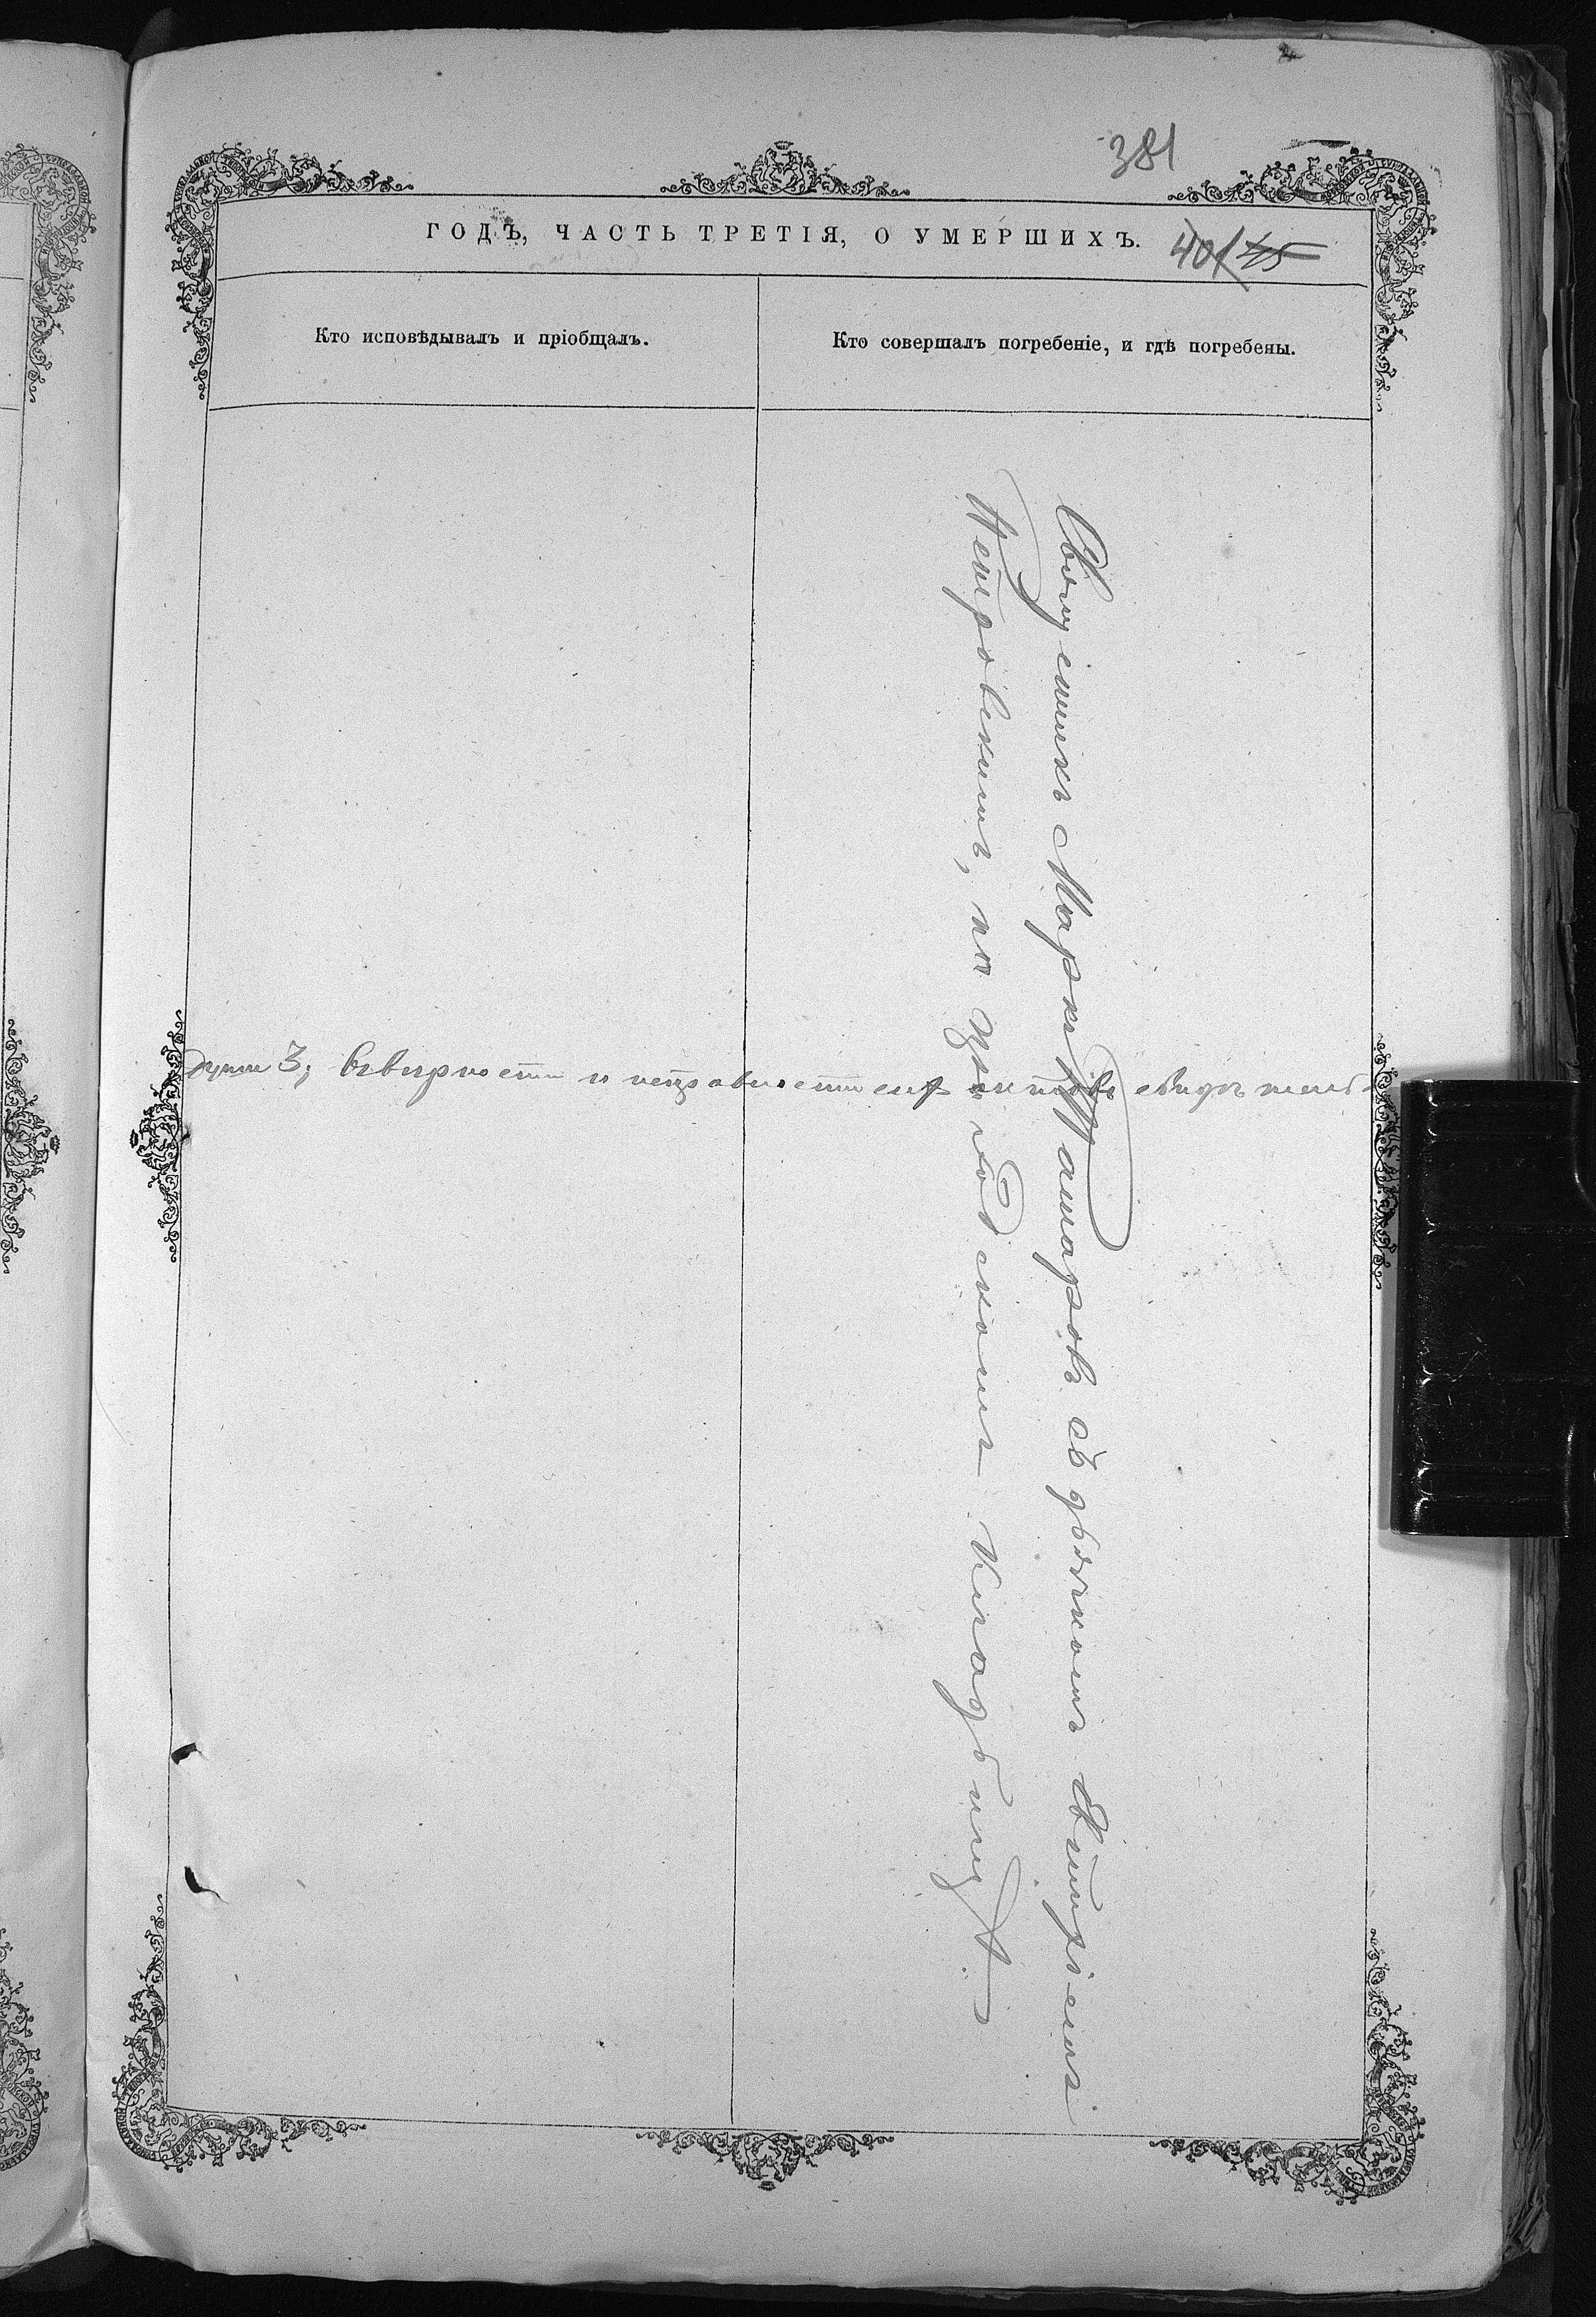 381
ГОДЪ, ЧАСТЬ ТРЕТІЯ, О УМЕРШИХЪ.
401 45
Кто исповѣдывалъ и пріобщалъ.
Кто совершалъ погребеніе, и гдѣ погребены.
Священникъ Маркъ съ дьячкомъ Евтихіемъ
Петровскимъ, на приходскомъ кладбищѣ
души 3; въ вѣрности и исправности сихъ актовъ свидѣтель